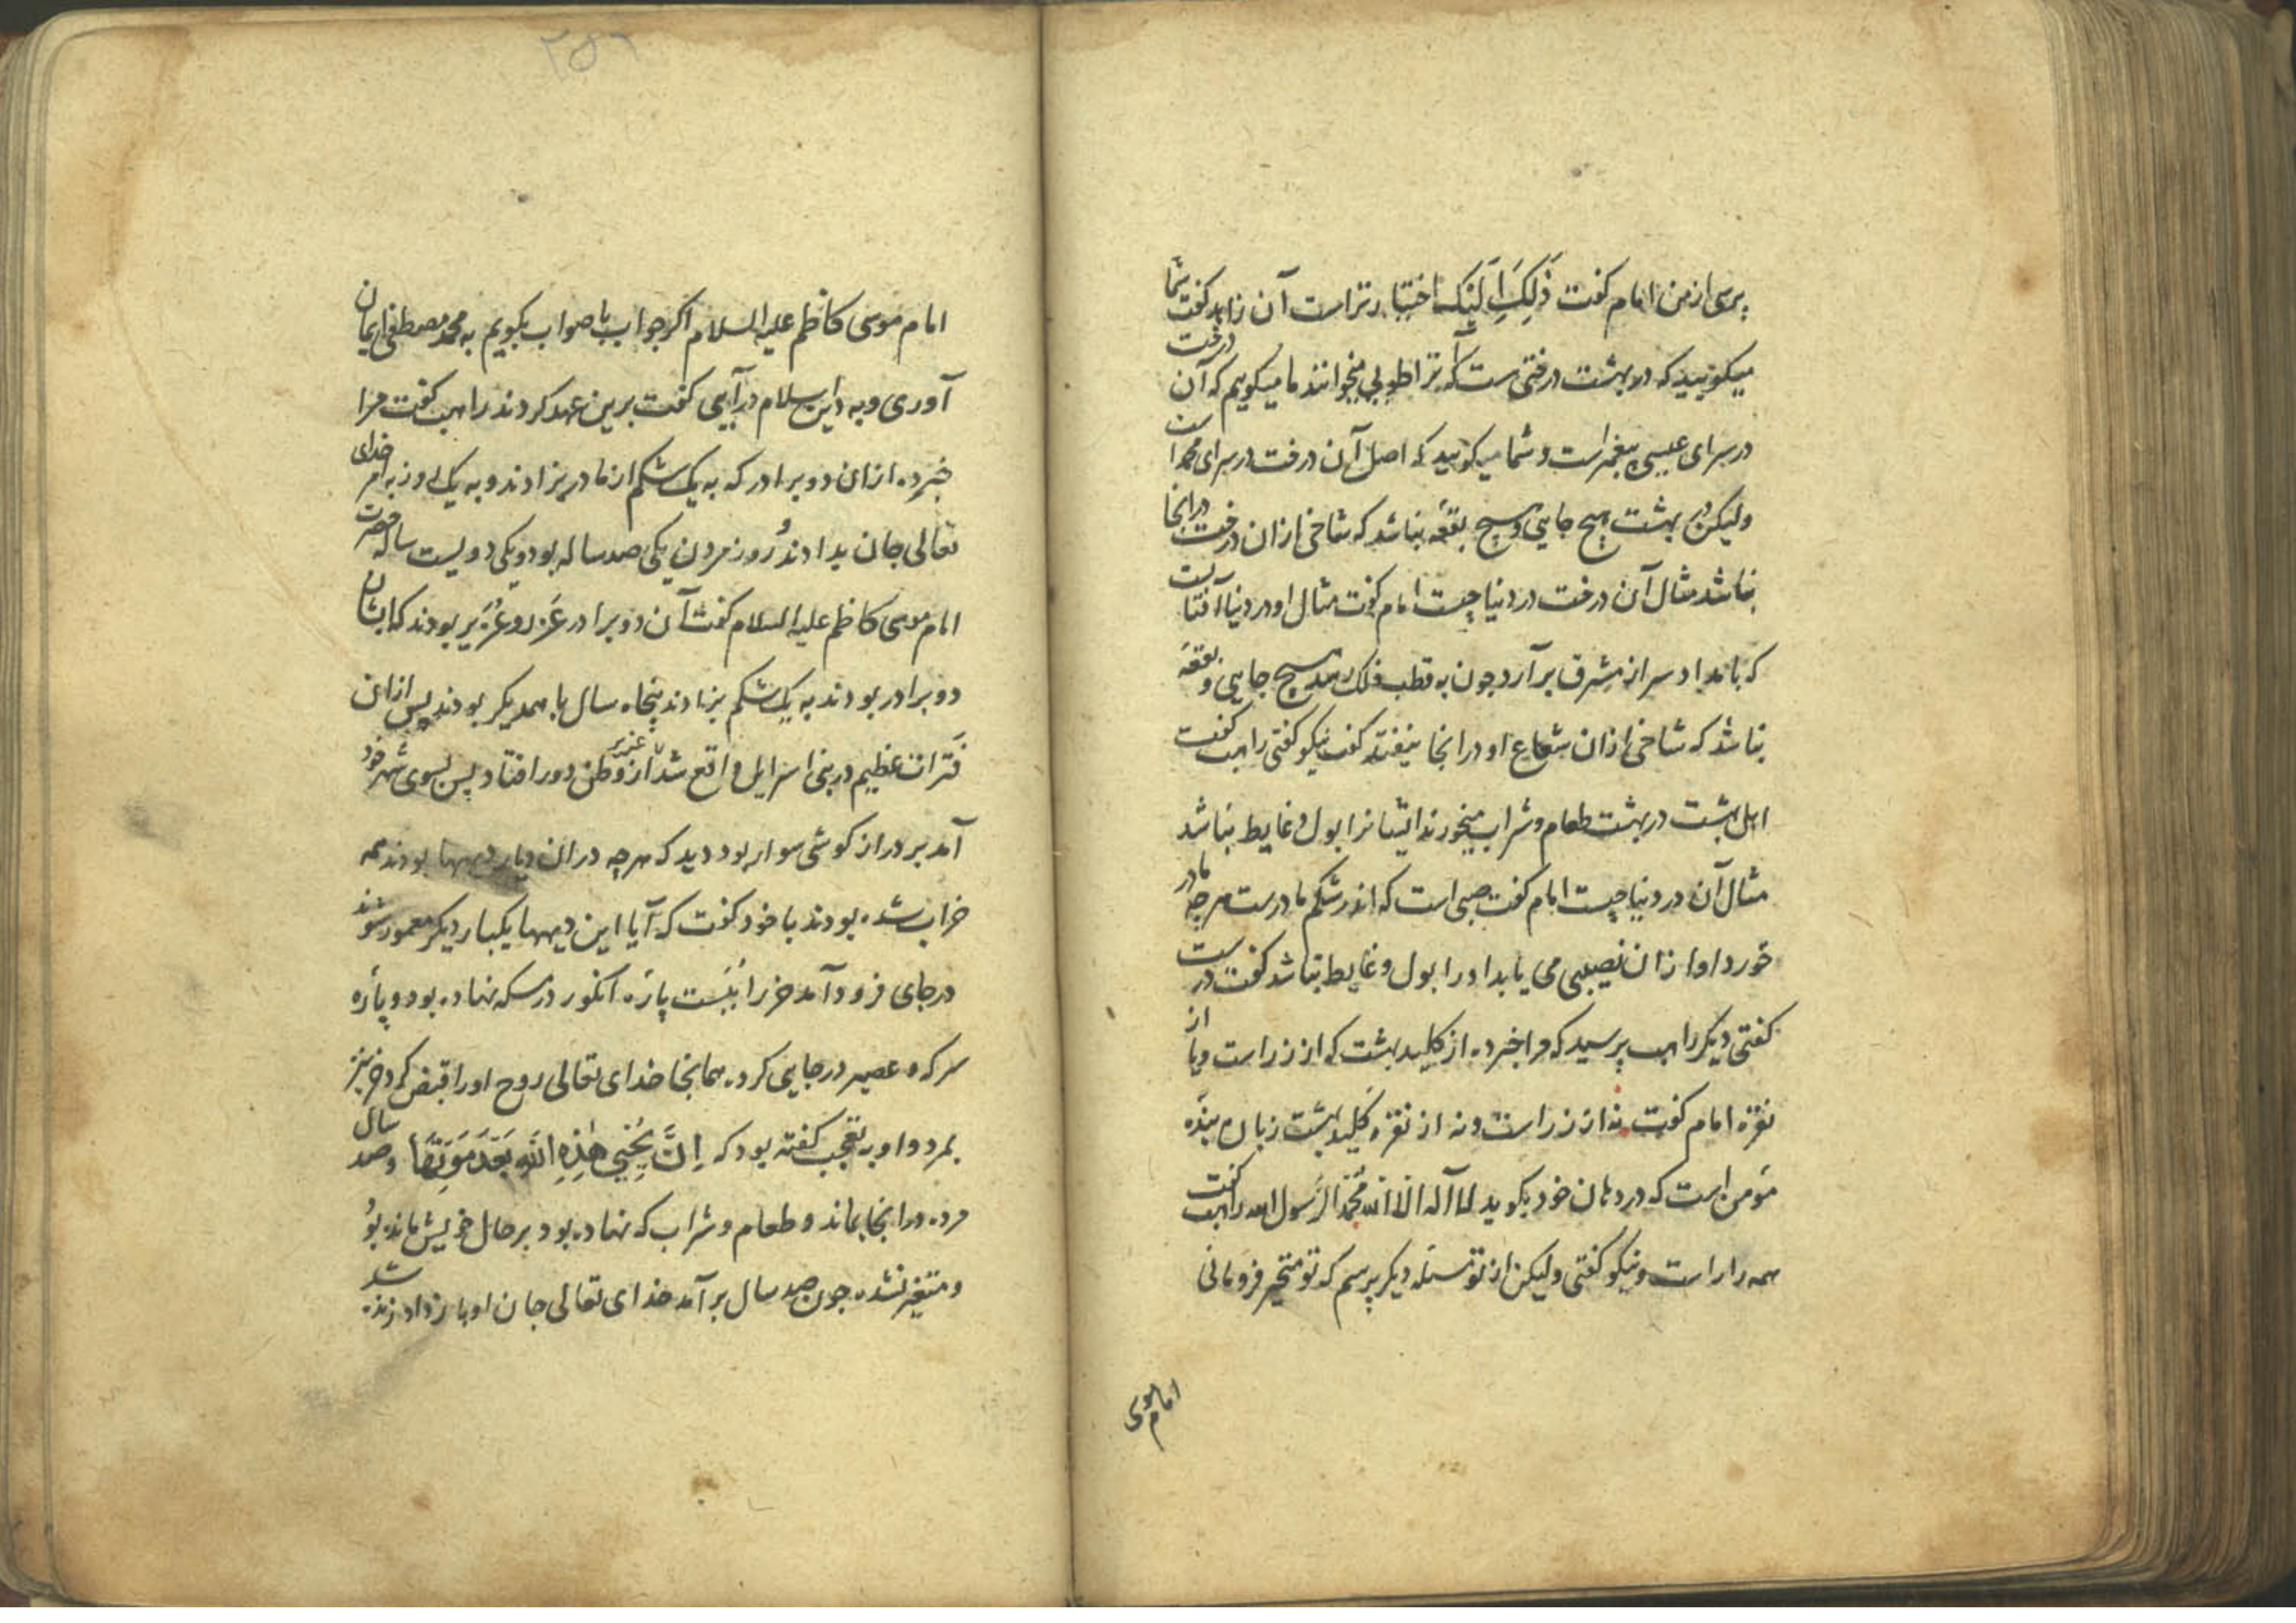 پرسی از من امام کفت ذَلِكَ اِلَيْكَ اختیار تراست آن زاهد کفت شما
میکویید که در بهشت درختی است که آنرا طوبی میخوانند ما میکوییم که آن درخت
در سرای عیسی پیغمبراست و شما میکویید که اصل آن درخت در سرای محمد است
ولیکن در بهشت هیچ جایی و هیچ بقعه نباشد که شاخی ازان درخت در انجا
نباشد مثال آن درخت در دنیا چیست امام کفت مثال او در دنیا آفتابست
که بامداد سر از مشرق برآرد چون به قطب فلک رسد هیچ جایی و بقعه
نباشد که شاخی ازان شعاع او در انجا نیفتد کفت نیکو کفتی راهب کفت
اهل بهشت در بهشت طعام و شراب میخورند ایشانرا بول و غایط نباشد
مثال آن در دنیا چیست امام کفت صبی است که اندر شکم مادرست هرچه مادر
خورد او ازان نصیبی می یابد او را بول و غایط نباشد کفت درست
کفتی دیکر راهب پرسید که مرا خبر ده از کلید بهشت که از زر است ویا از
نقره امام کفت نه از زر است و نه از نقره کلید بهشت زبان بنده
مؤمن است که در دهان خود بکوید لا اله الا الله محمد الرسول الله راهب کفت
همه را راست و نیکو کفتی ولیکن از تو مسئله دیکر پرسم که تو متحیر فرومانی
امام موسی
۲۵۶
امام موسی کاظم علیه السلام اکر جواب باصواب بکویم به محمد مصطفی ایمان
آوری و به دین اسلام درآیی کفت برین عهد کردند راهب کفت مرا
خبر ده ازان دو برادر که به یک شکم از مادر بزادند و به یک روز به امر خدای
تعالی جان بدادند و روز مردن یکی صد ساله بود و یکی دویست ساله حضرت
امام موسی کاظم علیه السلام کفت آن دو برادر عزر و عُزَیر بودند که ایشان
دو برادر بودند به یک شکم بزادند پنجاه سال با همدیکر بودند پس ازان
فَترات عظیم در بنی اسرایل واقع شد عزیر از وطن دور افتاد پس بسوی شهر خود
آمد بر دراز کوشی سوار بود دید که هرچه دران دیار دیهها بودند همه
خراب شده بودند با خود کفت که آیا این دیهها یکبار دیکر معمور شوند
در جای فرود آمد خر را ببست پارَه انکور در سکه نهاده بود و پارَه
سرکه و عصیر در جایی کرده همانجا خدای تعالی روح او را قبض کرد و خر نیز
بمرد و او به تعجب کفته بود که اِنَّ يُحْيِي هٰذِهِ اللّٰهُ بَعْدَ مَوْتِهَا و صد سال
مرده در انجا بماند و طعام و شراب که نهاده بود بر حال خویش مانده بود
و متغیر نشده چون صد سال برآمد خدای تعالی جان او باز داد زنده شد